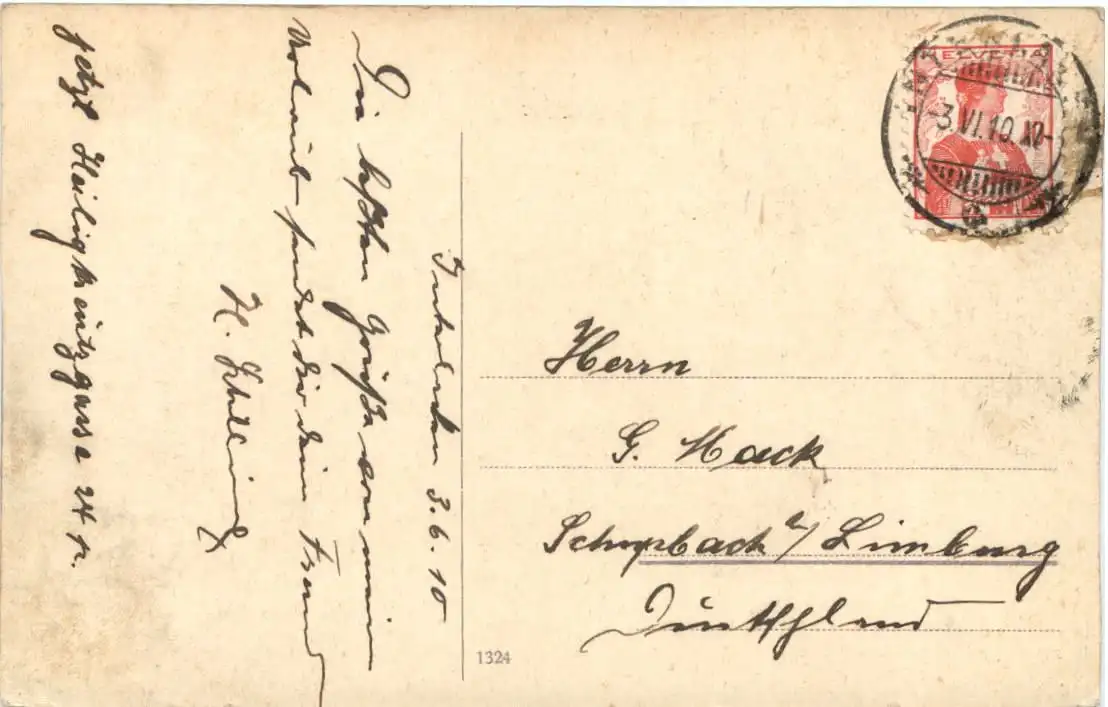 Interlaken 3.6.10
Die besten Grüße von meinem
sendet dir dein Freund
H.
jetzt Heiligkreuzgasse 24 p.
HELVETIA
-3.VI.10.XII-
Herrn
G. Mack
Schupbach a/ Limburg
Deutschland
1324